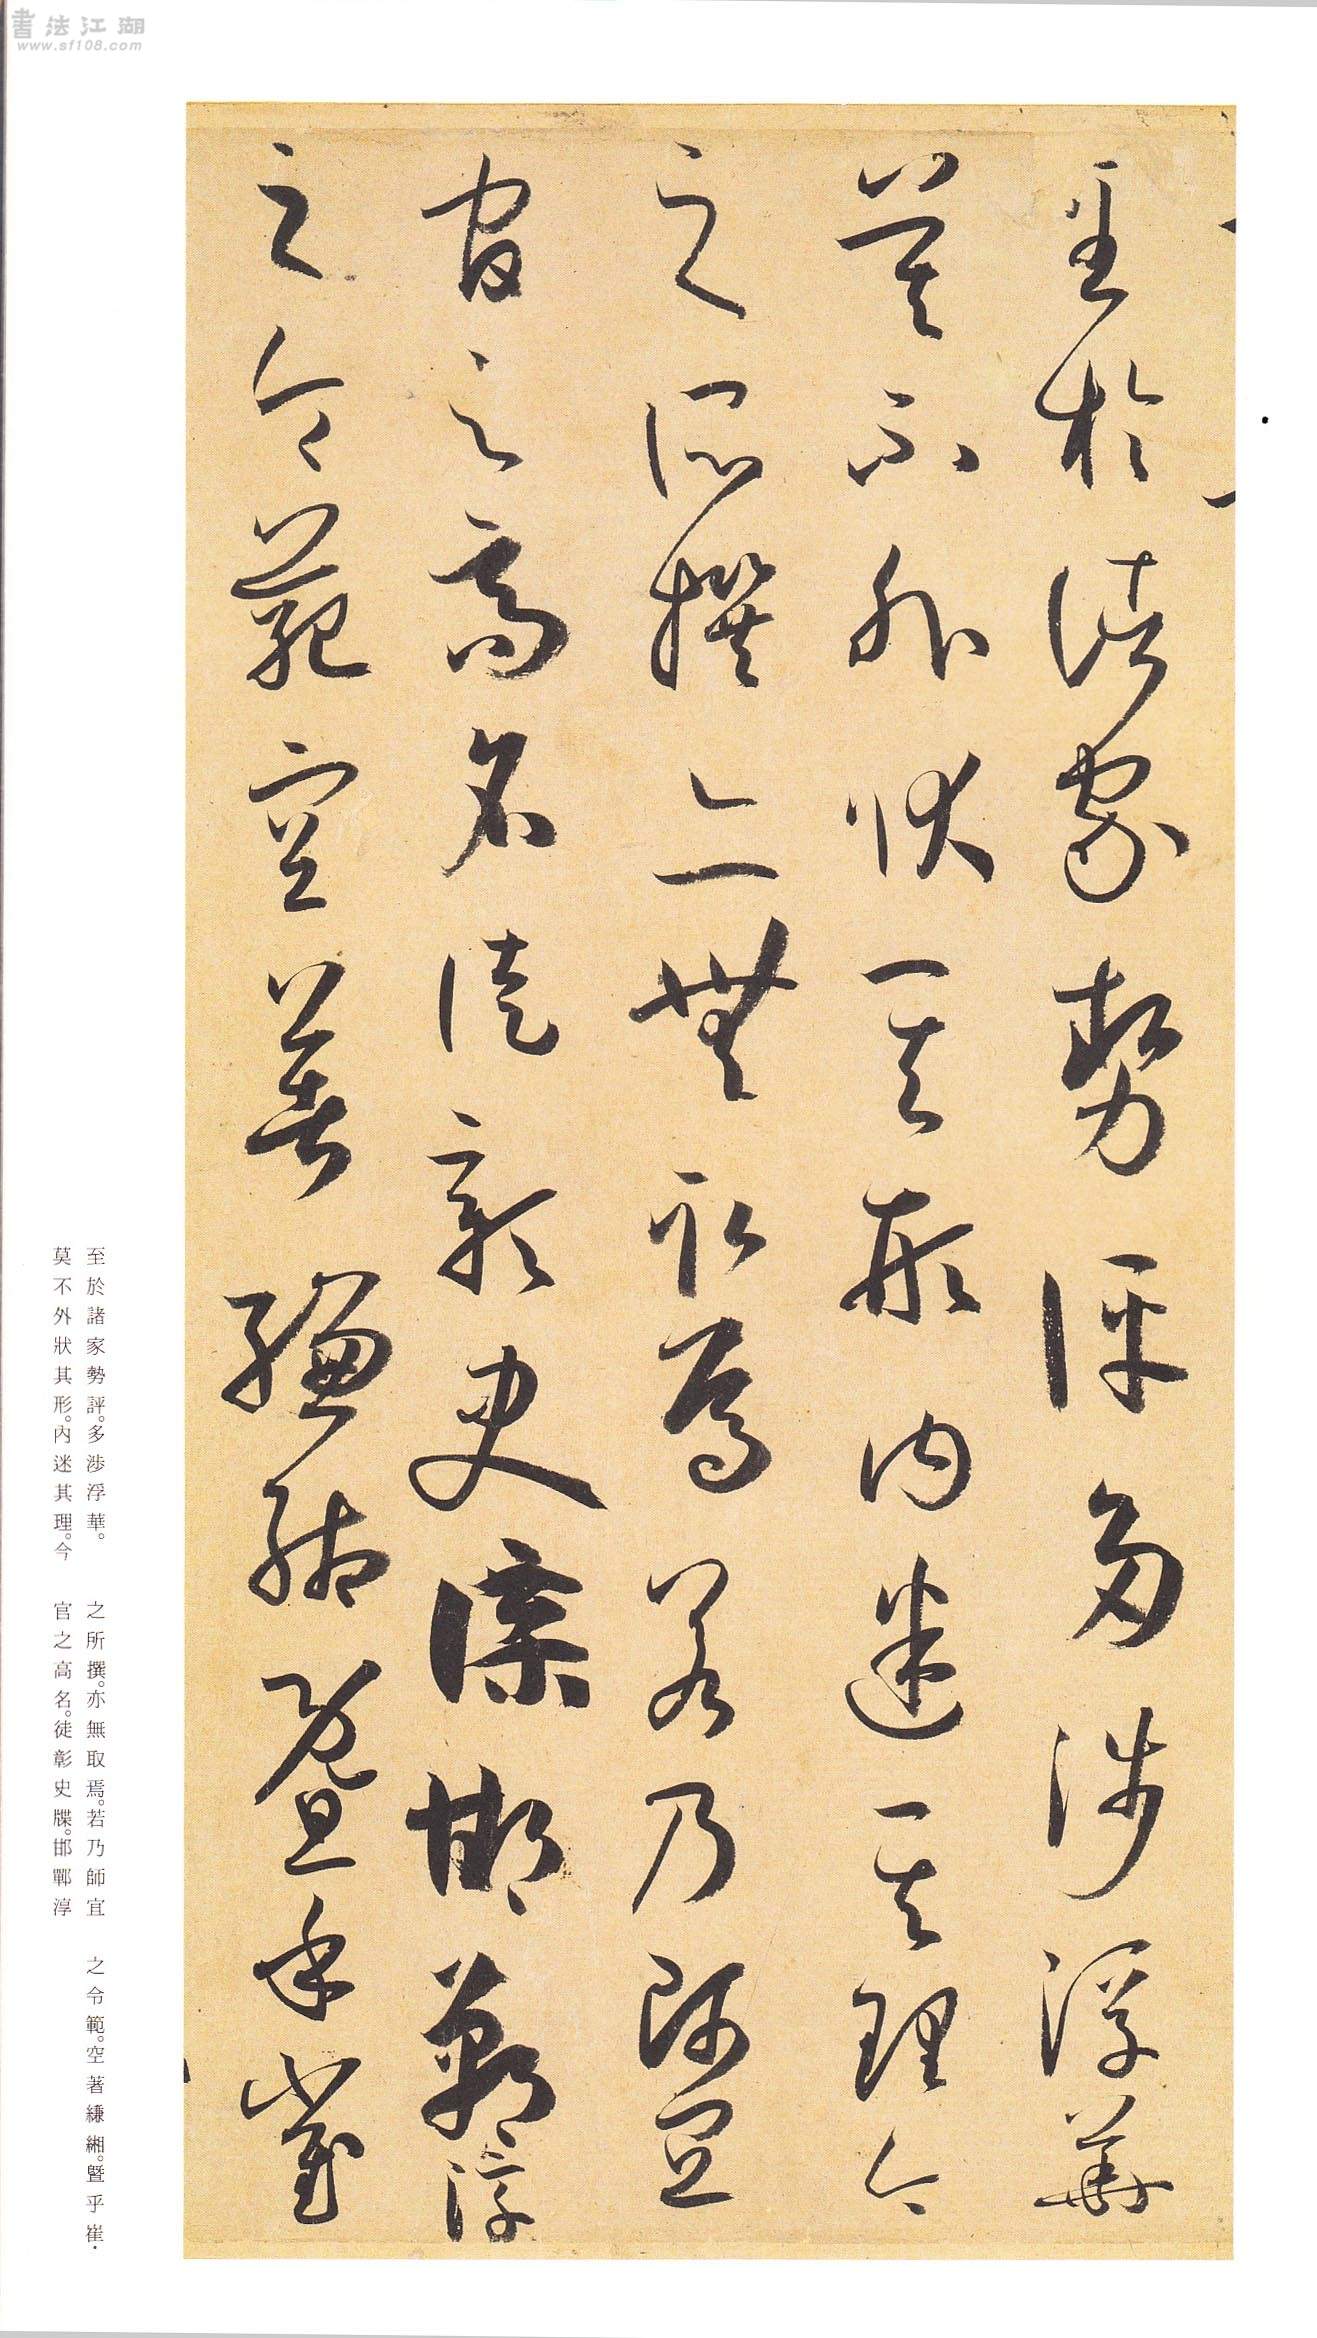 書法江湖
www.sf108.com
至於諸家勢評多涉浮華
莫不外狀其形內迷其理今
之所撰亦無取焉若乃師宜
官之高名徒彰史牒邯鄲淳
之令範空著縑緗暨乎崔
至於諸家勢評。多涉浮華。
莫不外狀其形。內迷其理。今
之所撰。亦無取焉。若乃師宜
官之高名。徒彰史牒。邯鄲淳
之令範。空著縑緗。暨乎崔·